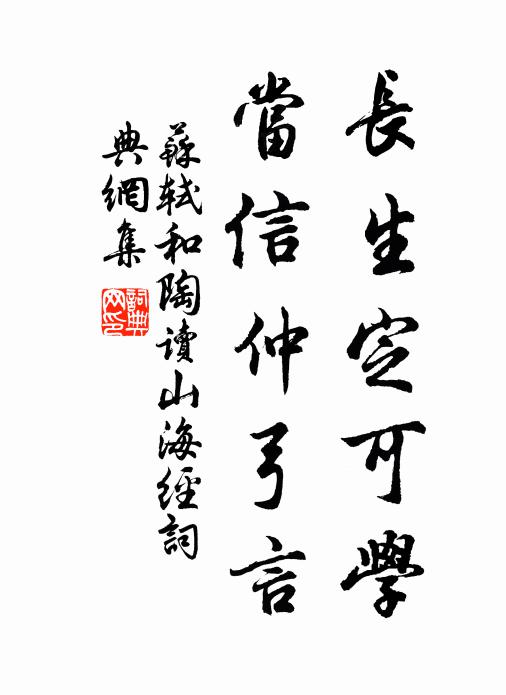 長生定可學
當信仲弓言
蘇軾和陶讀山海經詞
典網集
詞典
網印